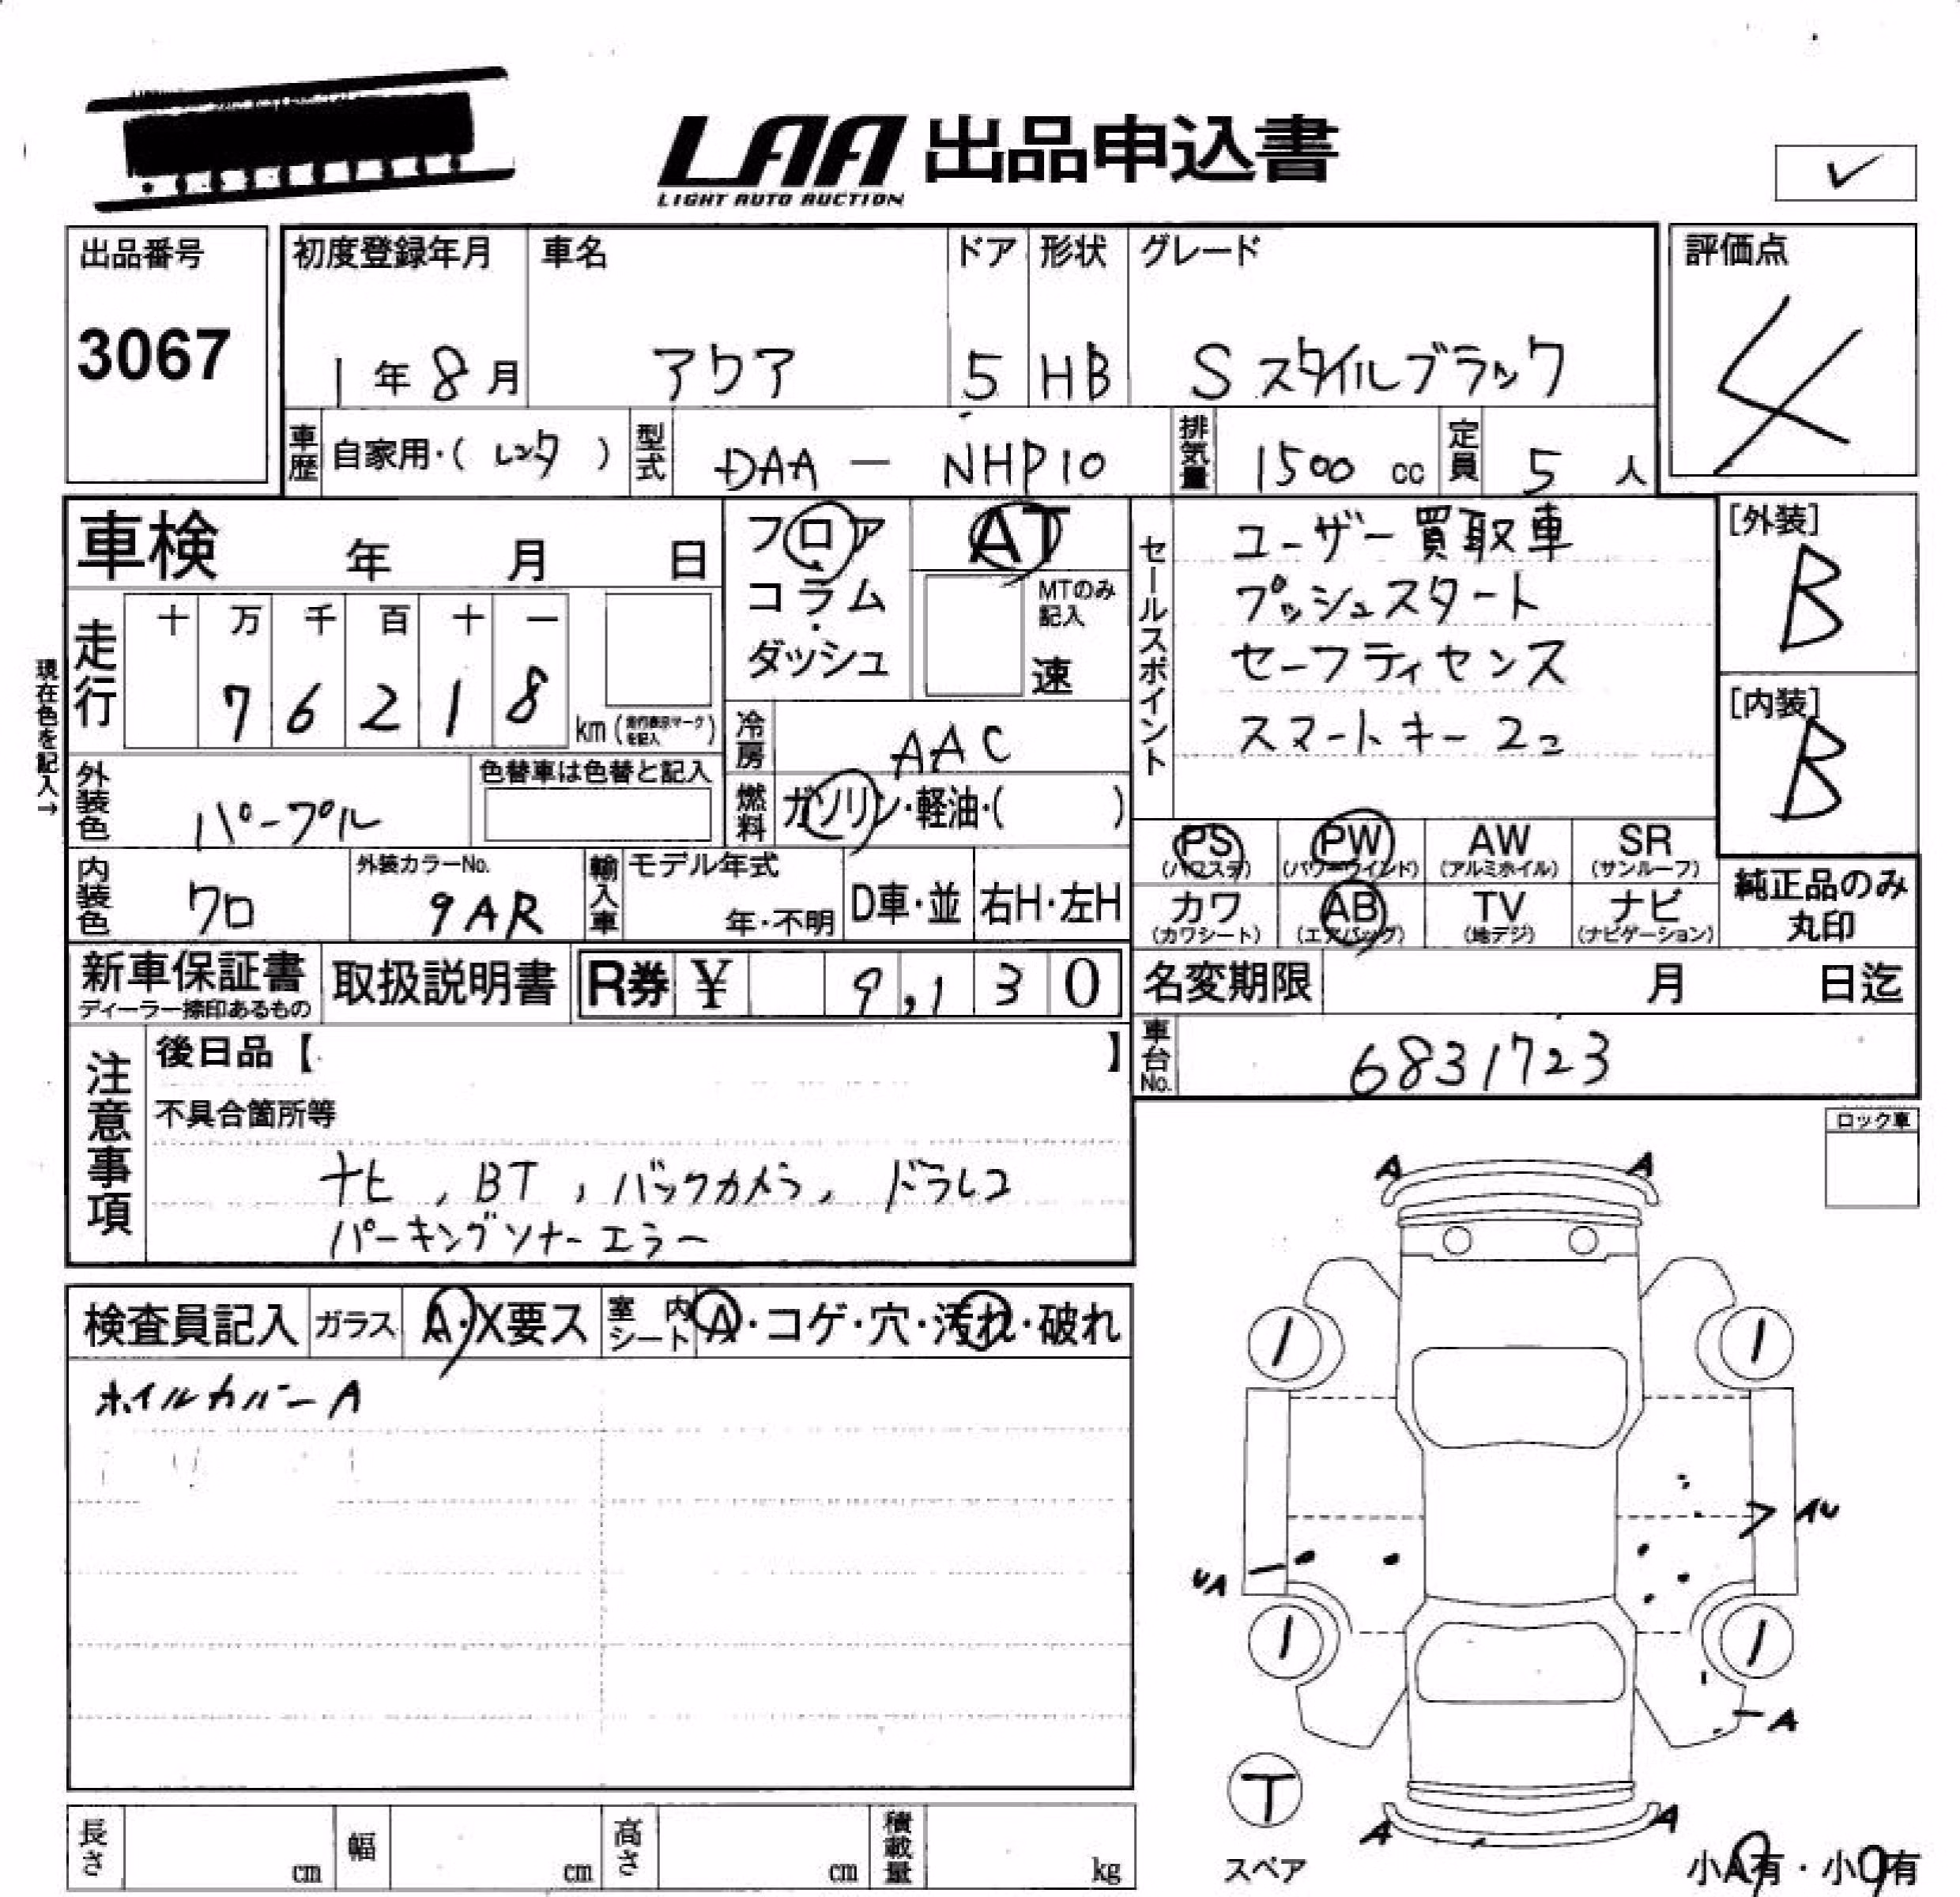 LAA 出品申込書
LIGHT AUTO AUCTION
出品番号
3067
初度登録年月
1年8月
車名
アクア
ドア
5
形状
HB
グレード
S スタイルブラック
評価点
4
車歴 自家用・( レンタ )
型式 DAA － NHP10
排気量 1500 cc
定員 5 人
車検 年 月 日
走行
十 万 千 百 十 一
7 6 2 1 8
km (走行表示マークを記入)
現在色を記入→
フロア
・
コラム
・
ダッシュ
AT
MTのみ記入
速
冷房 AAC
燃料 ガソリン・軽油・( )
セールスポイント
ユーザー買取車
プッシュスタート
セーフティセンス
スマートキー 2コ
[外装]
B
[内装]
B
外装色 パープル
色替車は色替と記入
内装色 クロ
外装カラーNo.
9AR
輸入車 モデル年式
年・不明
D車・並
右H・左H
PS (パワステ)
PW (パワーウインド)
AW (アルミホイル)
SR (サンルーフ)
カワ (カワシート)
AB (エアバッグ)
TV (地デジ)
ナビ (ナビゲーション)
純正品のみ
丸印
新車保証書
ディーラー捺印あるもの
取扱説明書
R券 ¥ 9,130
名変期限 月 日迄
車台No. 6831723
注意事項
後日品【 】
不具合箇所等
ナビ, BT, バックカメラ, ドラレコ
パーキングソナーエラー
ロック車
検査員記入
ガラス A・X要ス
室内シート A・コゲ・穴・汚れ・破れ
ホイルカバーA
A A
1 1
AU
UA
1 1
A
T
スペア
A A
小A有・小U有
長さ cm
幅 cm
高さ cm
積載量 kg